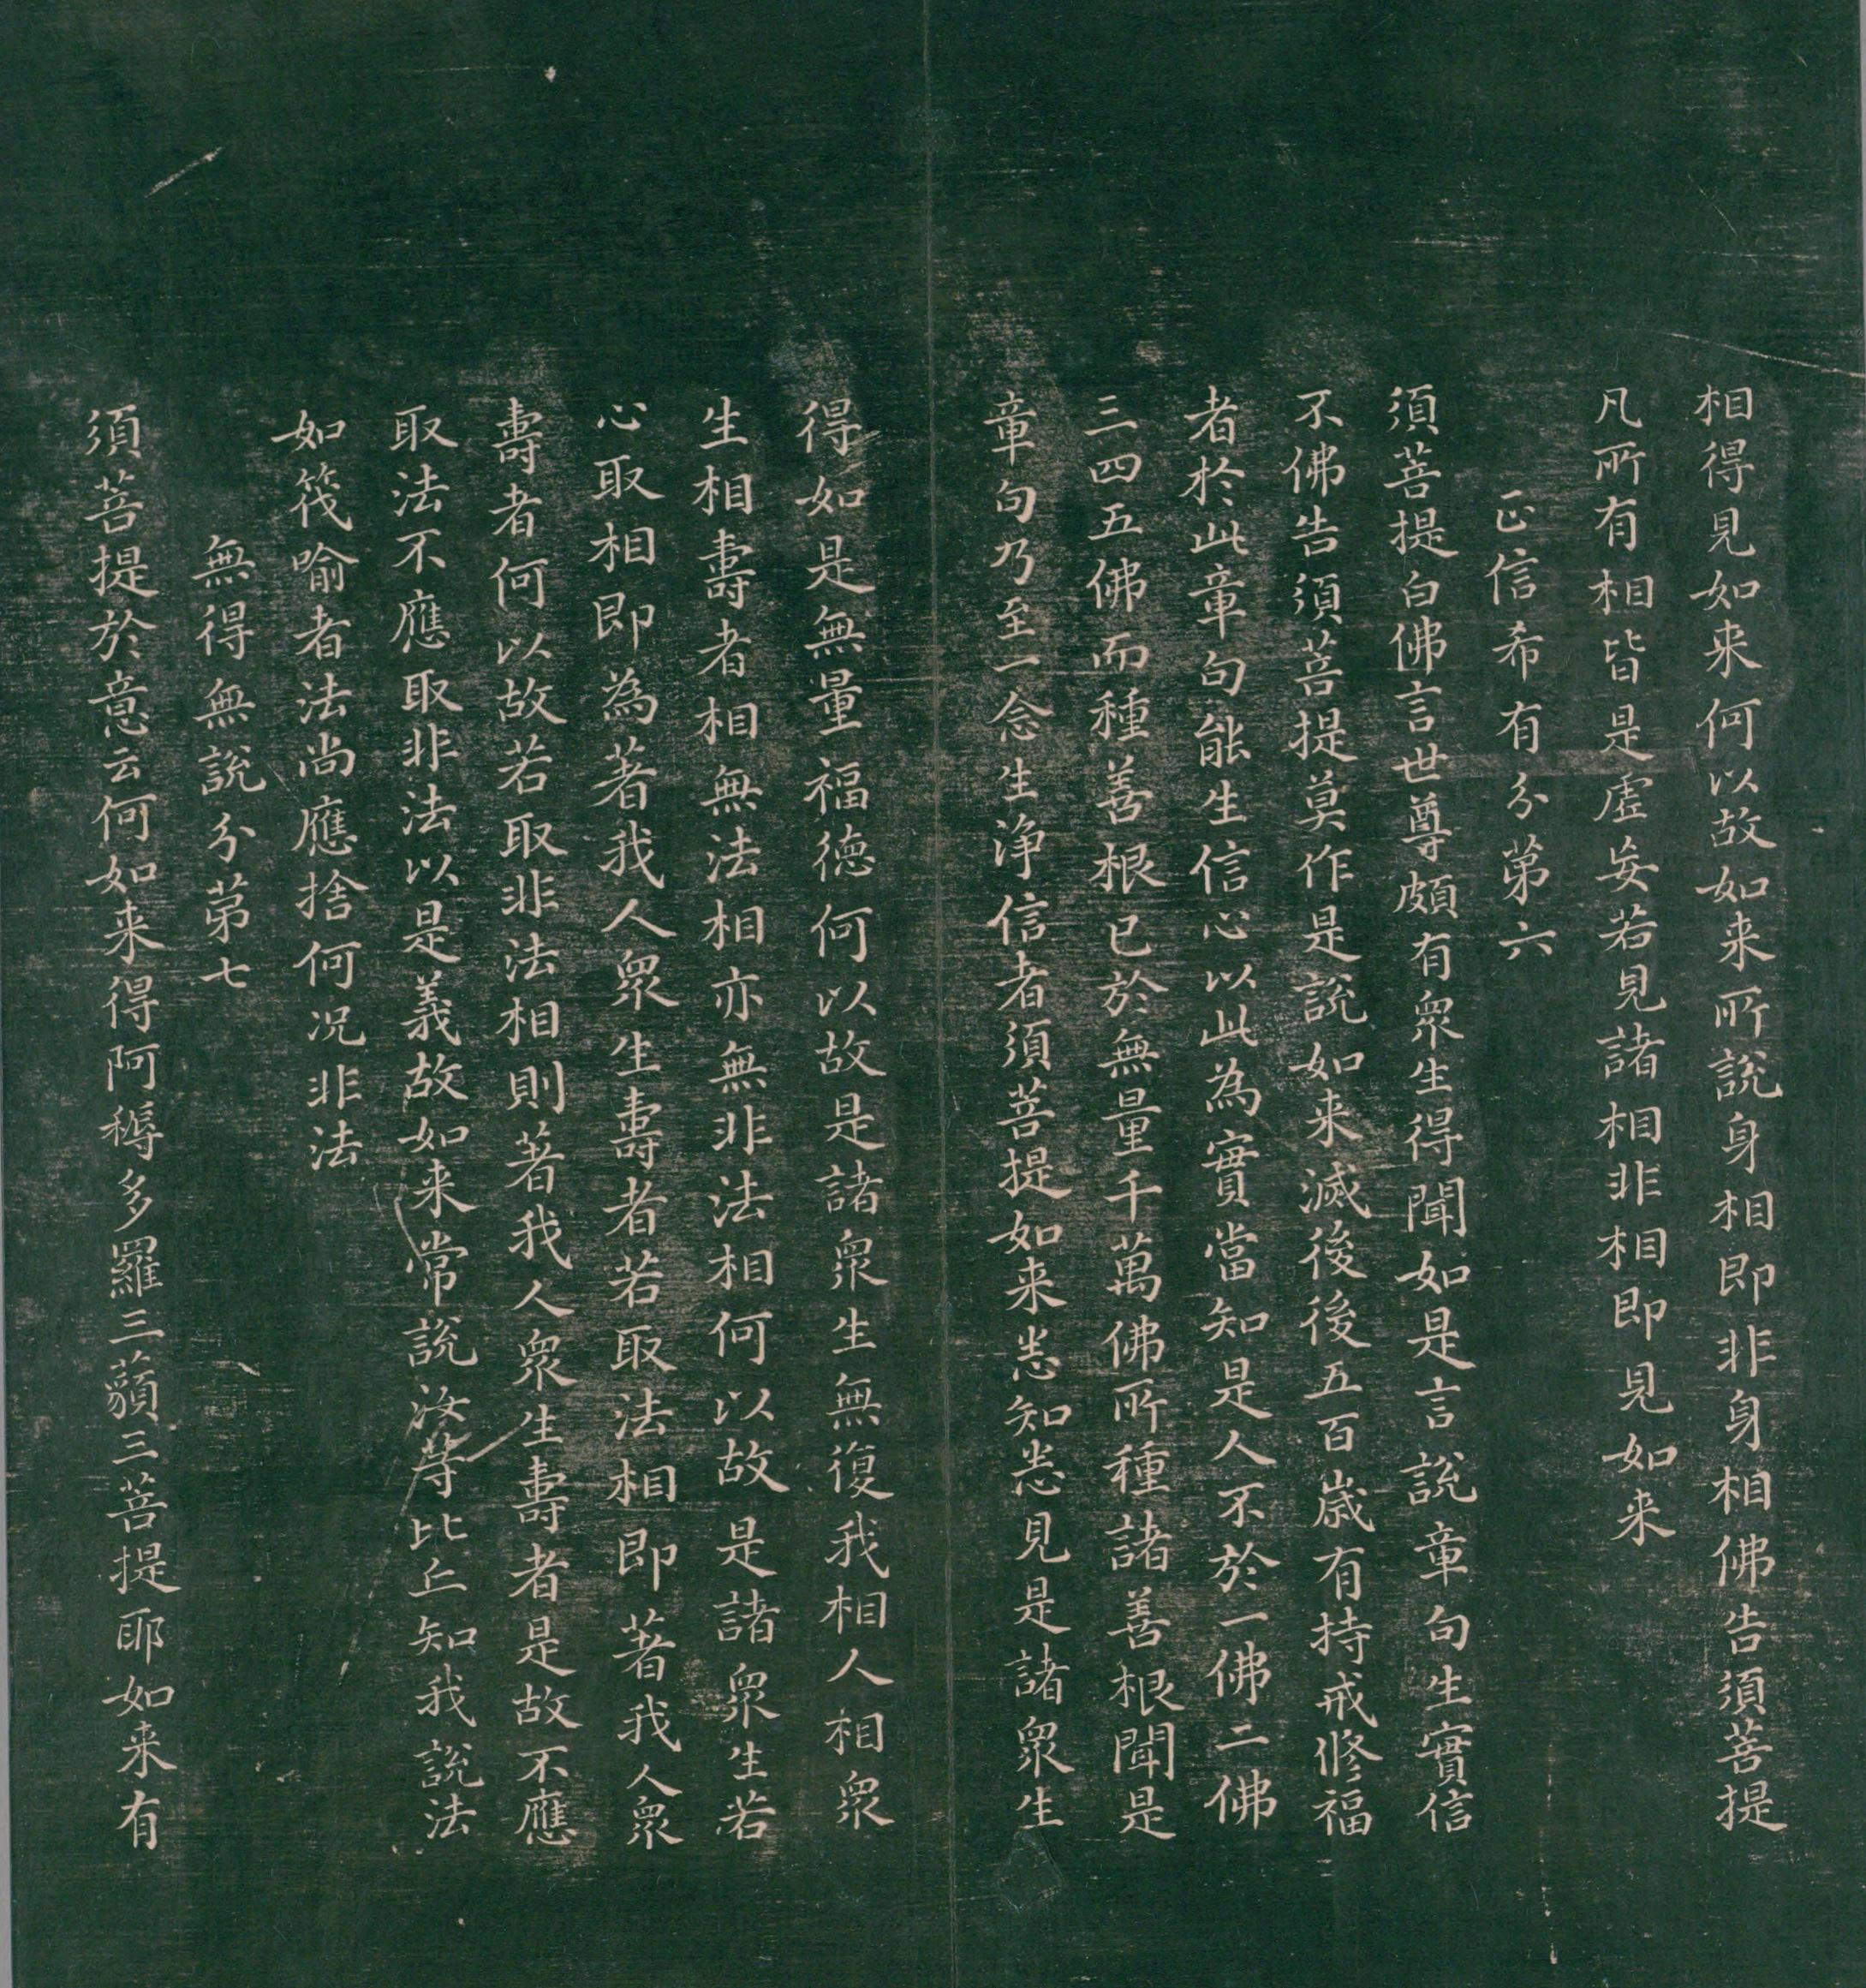 相得見如来何以故如来所說身相即非身相佛告須菩提
凡所有相皆是虛妄若見諸相非相即見如来
正信希有分第六
須菩提白佛言世尊頗有衆生得聞如是言說章句生實信
不佛告須菩提莫作是說如来滅後後五百歲有持戒修福
者於此章句能生信心以此為實當知是人不於一佛二佛
三四五佛而種善根已於無量千萬佛所種諸善根聞是
章句乃至一念生淨信者須菩提如来悉知悉見是諸衆生
得如是無量福德何以故是諸衆生無復我相人相衆
生相壽者相無法相亦無非法相何以故是諸衆生若
心取相即為著我人衆生壽者若取法相即著我人衆
壽者何以故若取非法相則著我人衆生壽者是故不應
取法不應取非法以是義故如来常說汝等比丘知我說法
如筏喻者法尚應捨何况非法
無得無說分第七
須菩提於意云何如来得阿耨多羅三藐三菩提耶如来有